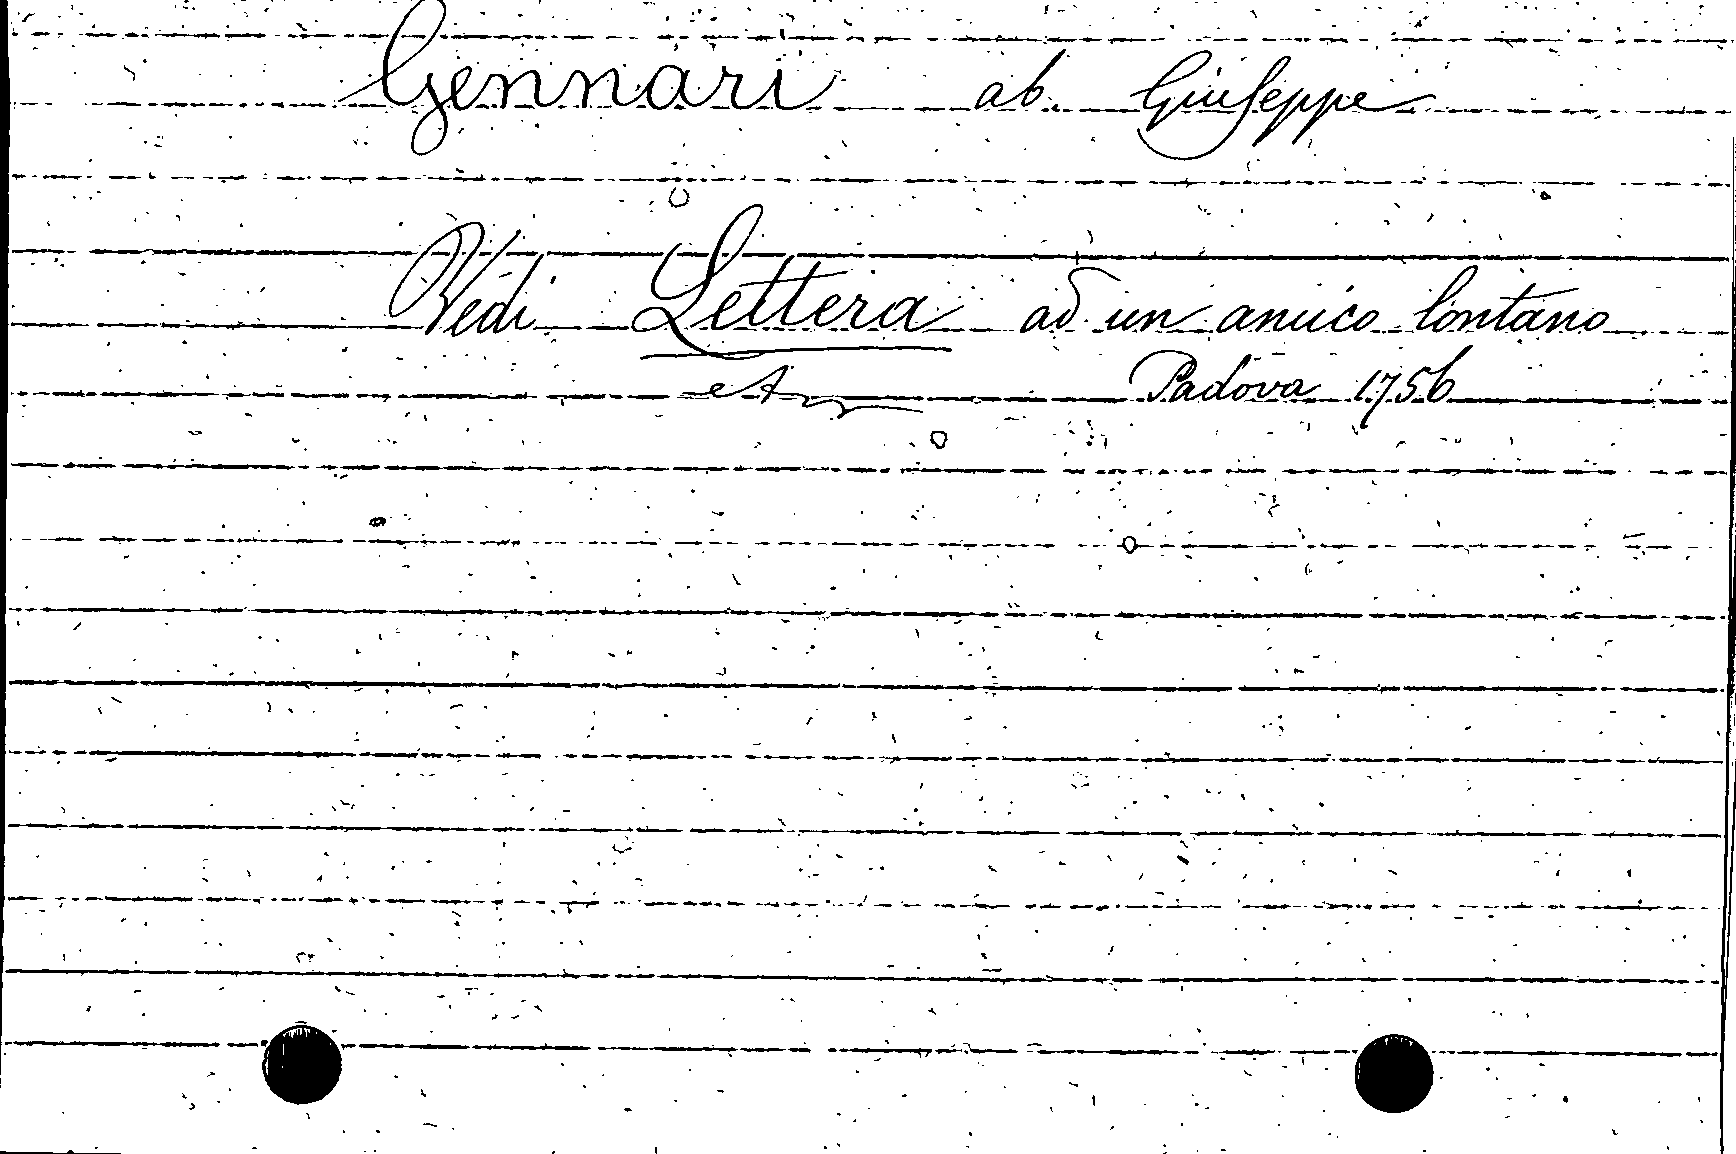 Gennari ab. Giuseppe
Vedi Lettera ad un amico lontano
Padova 1756